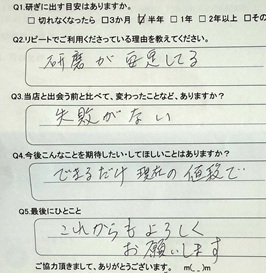 Q1.研ぎに出す目安はありますか。
□切れなくなったら □3か月 ☑半年 □1年 □2年以上 □その
Q2.リピートでご利用くださっている理由を教えてください。
研磨が 満足してる
Q3.当店と出会う前と比べて、変わったことなど、ありますか?
失敗がない
Q4.今後こんなことを期待したい・してほしいことはありますか?
できるだけ 現在の 値段で
Q5.最後にひとこと
これからもよろしく
お願いします
ご協力頂きまして、ありがとうございます。 m(_ _)m